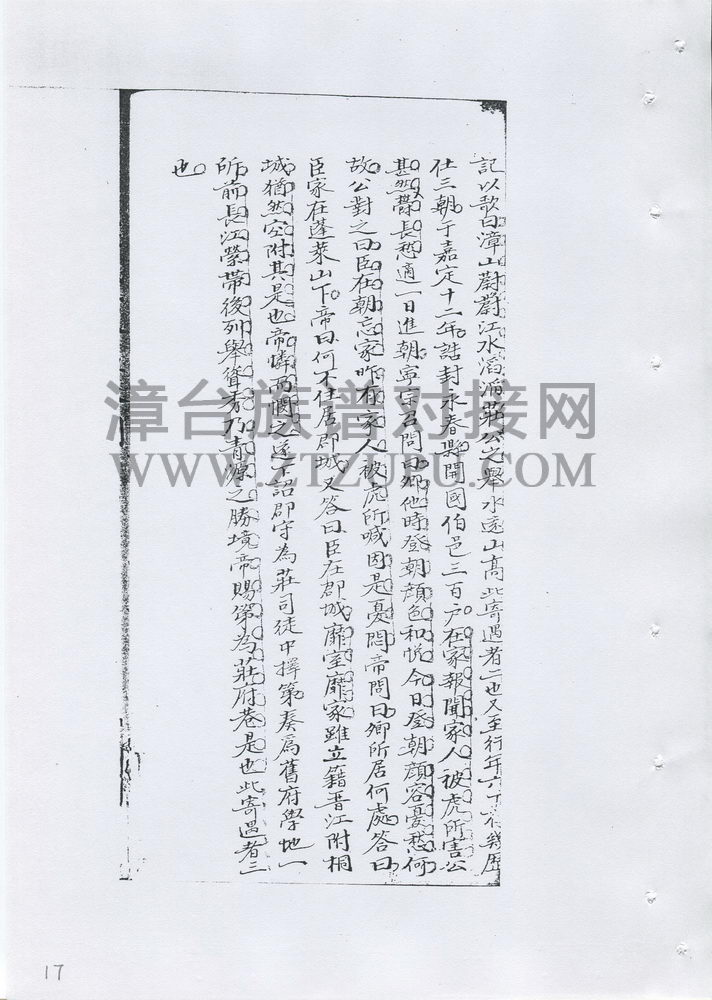 記以歌曰漳山蔚蔚江水滔滔莊公之舉水遠山高此寄遇者二也又至行年六十有幾歷
仕三朝于嘉定十二年誥封永春縣開國伯邑三百户在家報聞家人被虎所害公
甚然聲長愁適一日進朝寧宗君問曰卿他時登朝顏色和悦今日登朝顏容憂愁何
故公對之曰臣在朝忘家昨有家人被虎所喊因是憂悶帝問曰卿所居何處答曰
臣家在蓬萊山下帝曰何不住居郡城又答曰臣在郡城靡室靡家雖立籍晋江附桐
城猶然空附其是也帝憐而憫之遂下詔郡守為莊司徒中擇第奏爲舊府學地一
所前長江縈帶後列舉聳秀乃青源之勝境帝賜第為莊府巷是也此寄遇者三
也
漳台族谱对接网
WWW.ZTZUPU.COM
17